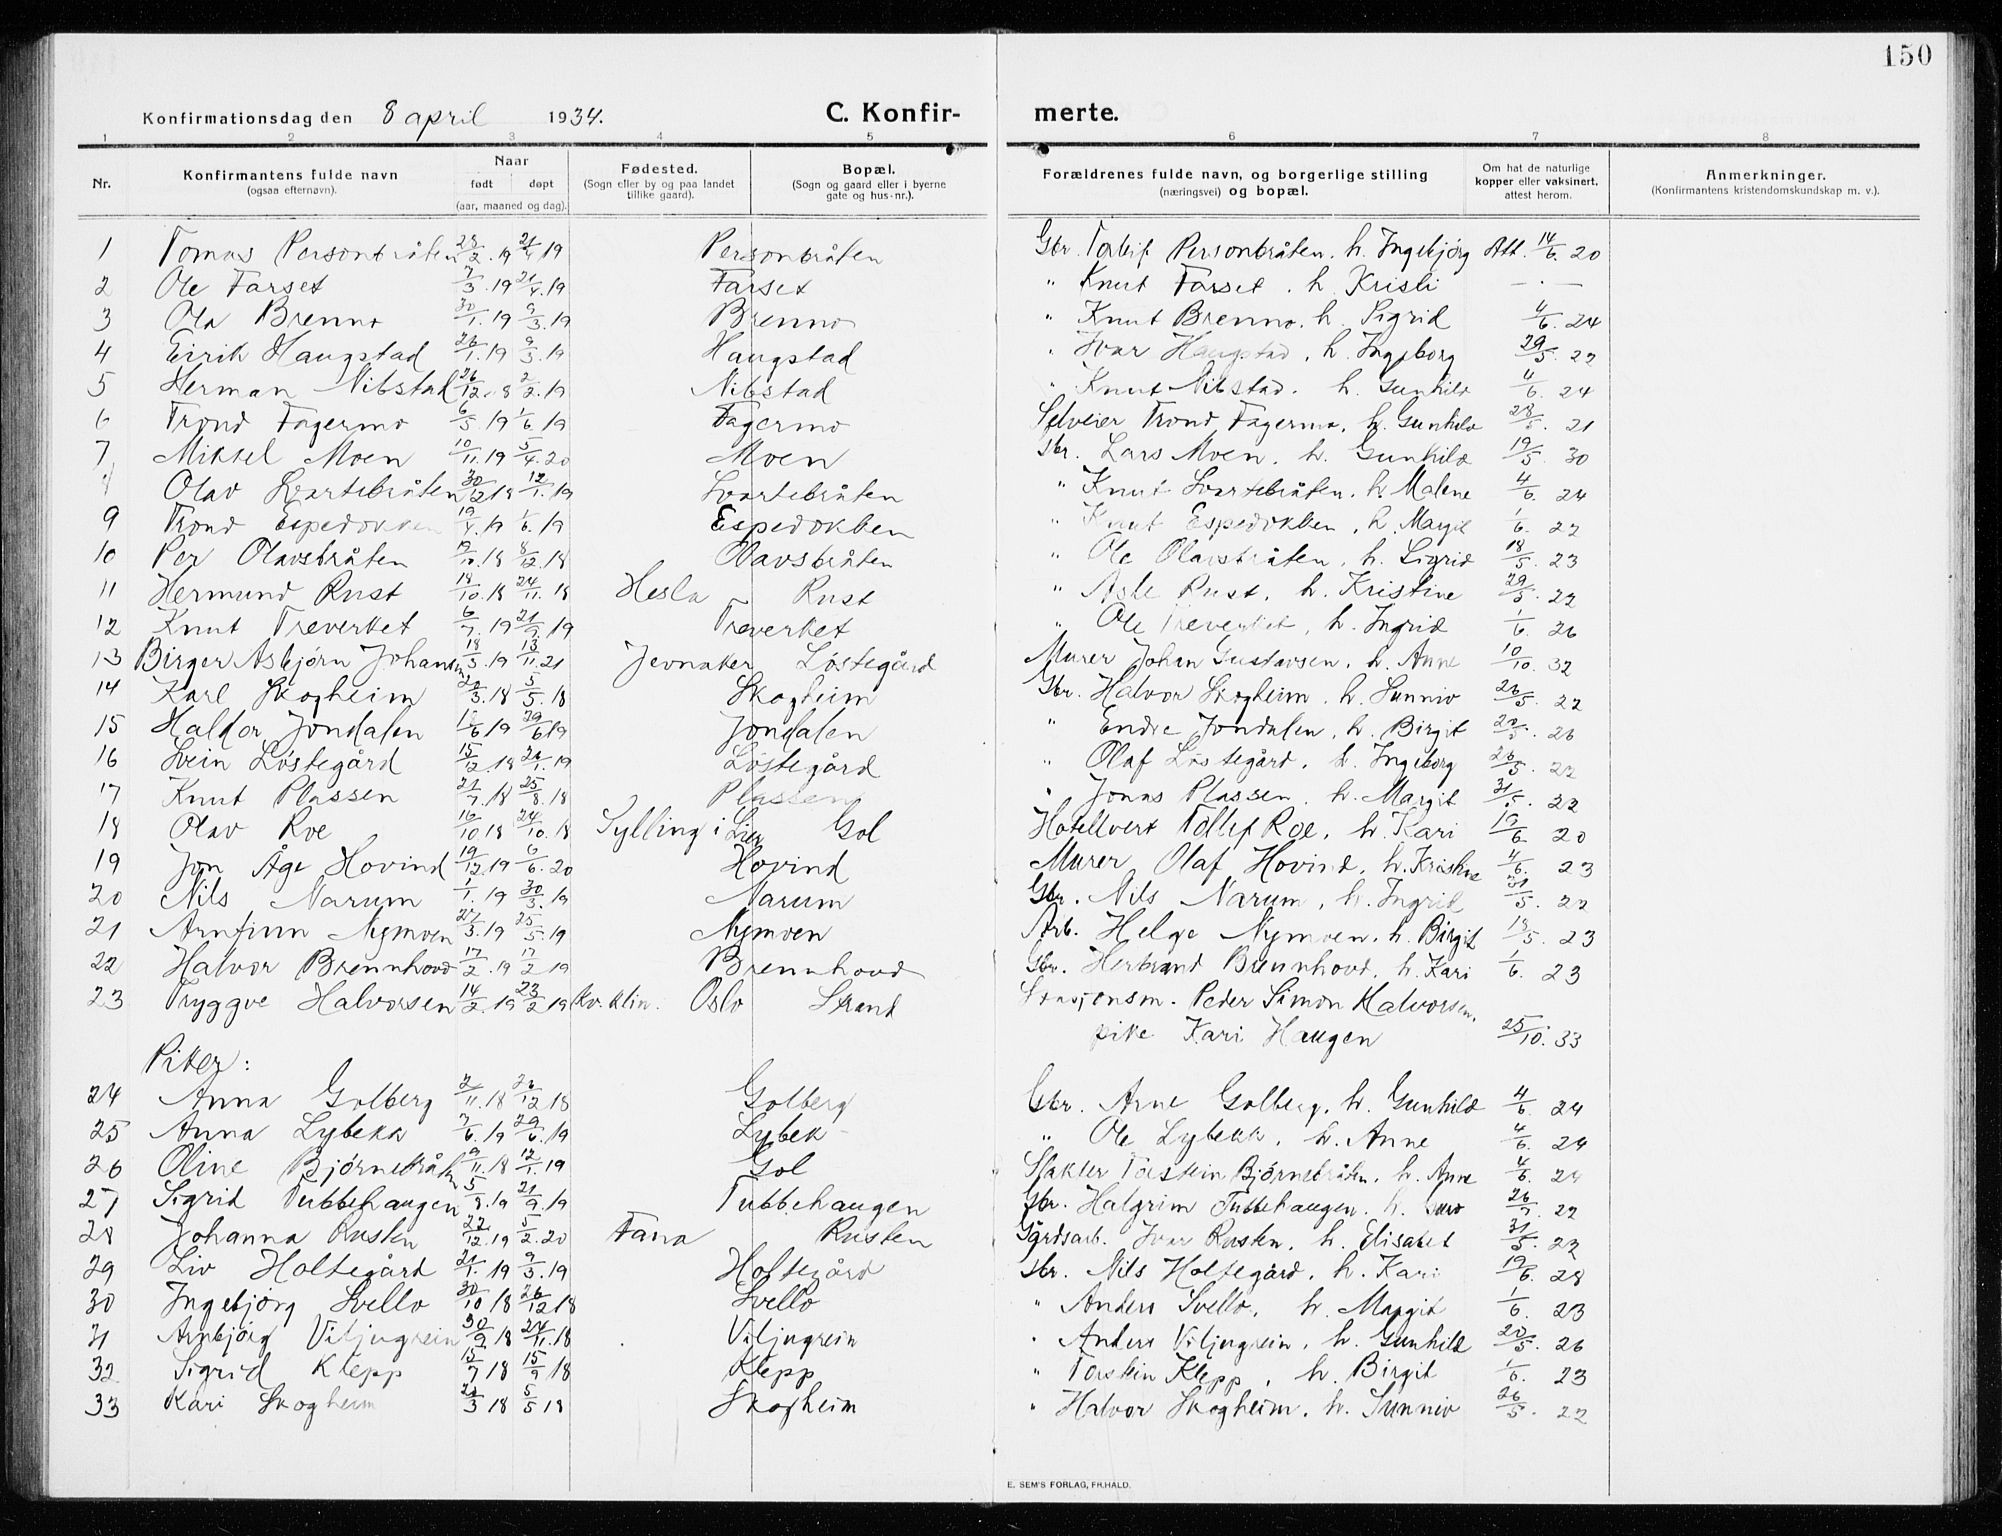 150
Konfirmationsdag den 8 april 1934. C. Konfir- merte.
1 2 3 4 5 6 7 8
Nr. Konfirmantens fulde navn (ogsaa efternavn). Naar født døpt (aar, maaned og dag). Fødested. (Sogn eller by og paa landet tillike gaard). Bopæl. (Sogn og gaard eller i byerne gate og hus-nr.). Forældrenes fulde navn, og borgerlige stilling (næringsvei) og bopæl. Om hat de naturlige kopper eller vaksinert, attest herom. Anmerkninger. (Konfirmantens kristendomskundskap m. v.).
1 Tomas Personbråten 28/2.19 21/4 19 Personbråten Gbr. Torleif Personbråten. h. Ingebjörg Att. 14/6. 20
2 Ole Farset 7/3.19 21/4.19 Farset " Knut Farset. h. Kristi — . —
3 Ola Brenno 30/1.19 9/3.19 Brenno " Knut Brenno. h. Sigrid 4/6. 24
4 Eirik Haugstad 26/1.19 9/3.19 Haugstad " Ivar Haugstad. h. Ingeborg 29/5. 22
5 Herman Nibstad 26/12.18 2/2.19 Nibstad " Knut Nibstad. h. Gunhild 4/6. 24
6 Trond Fagermo 6/5.19 1/6.19 Fagermo Selveier Trond Fagermo. h. Gunhild 28/5. 21
7 Mikkel Moen 10/11.19 5/4.20 Moen Gbr. Lars Moen. h. Gunhild 19/5. 30
8 Olav Svartebråten 30/12 18 12/1.19 Svartebråten " Knut Svartebråten. h. Malene 4/6. 24
9 Trond Espedokken 19/4.19 1/6.19 Espedokken " Knut Espedokken. h. Margit 1/6. 22
10 Per Olavsbråten 19/10.18 8/12.18 Olavsbråten " Ole Olavsbråten. h. Sigrid 18/5. 23
11 Hermund Rust 18/10.18 24/11.18 Hesla Rust " Asle Rust. h. Kristine 29/5. 22
12 Knut Treverket 6/7.19 21/9.19 Treverket " Ole Treverket. h. Ingrid 1/6. 26
13 Birger Asbjørn Johansen 18/3.19 13/11.21 Jevnaker Löstegård Murer Johan Gustavsen. h. Anne 10/10. 32
14 Karl Skogheim 22/3.18 5/5.18 Skogheim Gbr. Halvor Skogheim. h. Sunniv 26/5. 22
15 Haldor Jondalen /6 19 29/6 19 Jondalen " Endre Jondalen. h. Birgit 22/5. 26
16 Svein Löstegård 15/12.18 26/1.19 Löstegård " Olaf Löstegård. h. Ingeborg 26/5. 22
17 Knut Plassen 21/7.18 25/8.18 Plassen " Jonas Plassen. h. Margit 31/5. 22
18 Olav Roe 16/10 18 24/10.18 Sylling i Lier Gol Hotellvert Tollef Roe. h. Kari 19/6 20
19 Jon Åge Hovind 19/12.19 6/6.20 Hovind Murer Olaf Hovind. h. Kristine 4/6. 23
20 Nils Narum 1/1.19 30/3.19 Narum Gbr. Nils Narum. h. Ingrid 31/5. 22
21 Arnfinn Nymoen 27/3.19 25/5.19 Nymoen Arb. Helge Nymoen. h. Birgit 18/5. 23
22 Halvor Brennhovd 17/2.19 17/2 19 Brennhovd Gbr. Herbrand Brennhovd. h. Kari 1/6. 23
23 Tryggve Halvorsen 14/2.19 23/2 19 Kv.klin. Oslo Strand Stasjonsm. Peder Simon Halvorsen.
pike Kari Haugen 25/10. 33
Piker:
24 Anna Golberg 2/11.18 26/12 18 Golberg Gbr. Arne Golberg. h. Gunhild 4/6. 24
25 Anna Lybekk 7/6.19 29/6.19 Lybekk " Ole Lybekk. h. Anne 4/6. 24
26 Oline Bjørnebråten 9/11.18 12/1.19 Gol Slakter Torstein Bjørnebråten. h. Anne 4/6. 24
27 Sigrid Tubbehaugen 5/8.19 21/9.19 Tubbehaugen Gbr. Halgrim Tubbehaugen. h. Guro 26/7. 22
28 Johanna Rusten 22/12.19 5/2.20 Fana Rusten Gårdsarb. Ivar Rusten. h. Elisabet 31/5. 22
29 Liv Holtegård 21/1.19 9/3.19 Holtegård Gbr. Nils Holtegård. h. Kari 19/6. 28
30 Ingebjørg Svello 30/10 18 26/12 18 Svello " Anders Svello. h. Margit 1/6. 23
31 Arnbjörg Viljugrein 30/9 18 24/11.18 Viljugrein " Anders Viljugrein. h. Gunhild 20/5. 26
32 Sigrid Klepp 15/7 18 15/9 18 Klepp " Torstein Klepp. h. Birgit 1/6. 23
33 Kari Skogheim 22/3 18 5/5 18 Skogheim " Halvor Skogheim. h. Sunniv 26/5. 22
E. SEM'S FORLAG, FR.HALD.